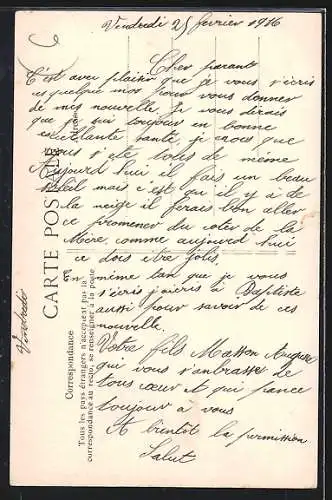 Vendredi 25 fevrier 1916
Cher parents
C'est avec plaisir que je vous s'écris
ces quelque mos pour vous donner
de mes nouvelle. Je vous dirais
que je sui toujour en bonne
exellante santé, je crois que
vous s'ete toles de même
Aujourd hui il fais un beau
soleil mais c est qui il y à de
la neige il ferais bon aller
ce promener du coter de la
Mère, comme aujourd hui
ce dois etre jolis,
En même tan que je vous
s'écris j'ecris à Baptiste
aussi pour savoir de ces
nouvelle.
Votre fils Masson Auguste
qui vous s'anbrasse de
tous cœur et qui pance
toujour a vous
A bientôt la permission
Salut
Vendredi
CARTE POSTALE
Correspondance
Tous les pays étrangers n'acceptent pas la
correspondance au recto, se renseigner à la poste